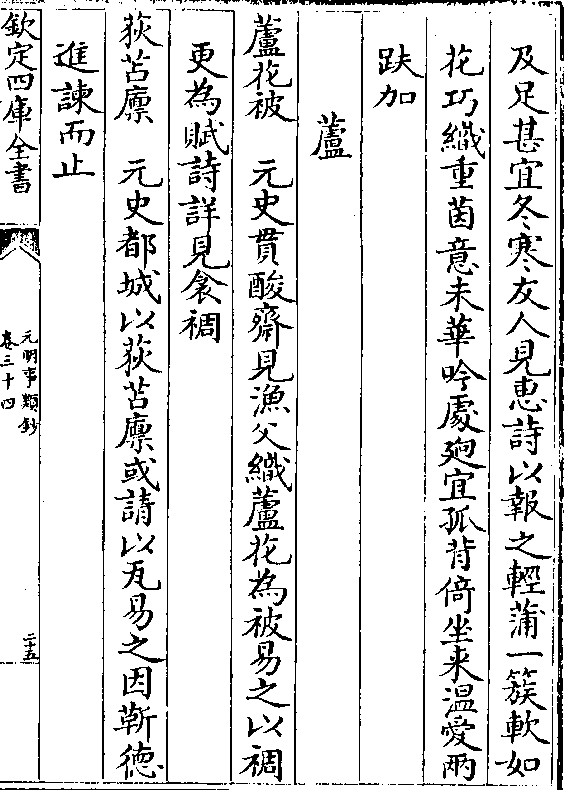 及足甚宜冬寒友人見惠詩以報之輕蒲一簇軟如
花巧織重茵意未華吟處廻宜孤背倚坐来温愛兩
趺加
蘆
蘆花被　元史貫酸齋見漁父織蘆花為被易之以裯
更為賦詩詳見衾裯
荻苫廪　元史都城以荻苫廪或請以瓦易之因靳德
進諫而止
欽定四庫全書
元明事類鈔
卷三十四
二十五